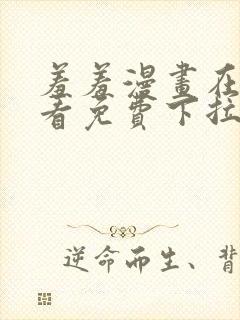 羞羞漫畫在
看免費下拉
逆命而生、背